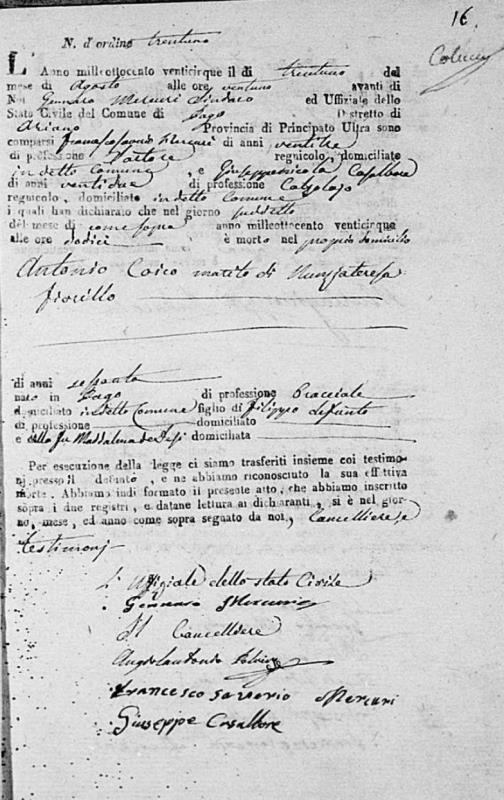 16
N. d'ordine trentuno
L'Anno milleottocento venticinque il dì trentuno del
mese di Agosto alle ore ventuno avanti di
Noi Gennaro Mercuri Sindaco ed Uffiziale dello
Stato Civile del Comune di Zago Distretto di
Ariano Provincia di Principato Ultra sono
comparsi Francesco Saverio Mercuri di anni ventitre
di professione regnicolo, domiciliato
in detto Comune, e Giuseppe Casalbore
di anni ventidue di professione Calzolajo
regnicolo, domiciliato in detto Comune
i quali han dichiarato che nel giorno suddetto
del mese di come sopra anno milleottocento venticinque
alle ore dodici è morto nel proprio domicilio
Antonio Coico marito di Nunziateresa
Fiorillo
di anni sessanta
nato in Zago di professione Bracciale
domiciliato in detto Comune figlio di Filippo defunto
di professione domiciliato
e della fu Maddalena domiciliata
Per esecuzione della legge ci siamo trasferiti insieme coi testimo-
nj presso il defunto, e ne abbiamo riconosciuto la sua effettiva
morte. Abbiamo indi formato il presente atto, che abbiamo inscritto
sopra i due registri, e datane lettura ai dichiaranti, si è nel gior-
no, mese, ed anno come sopra segnato da noi, Cancelliere, e
testimonj
L'Uffiziale dello stato Civile
Gennaro Mercuri
Il Cancelliere
Angelantonio
Francesco Saverio Mercuri
Giuseppe Casalbore